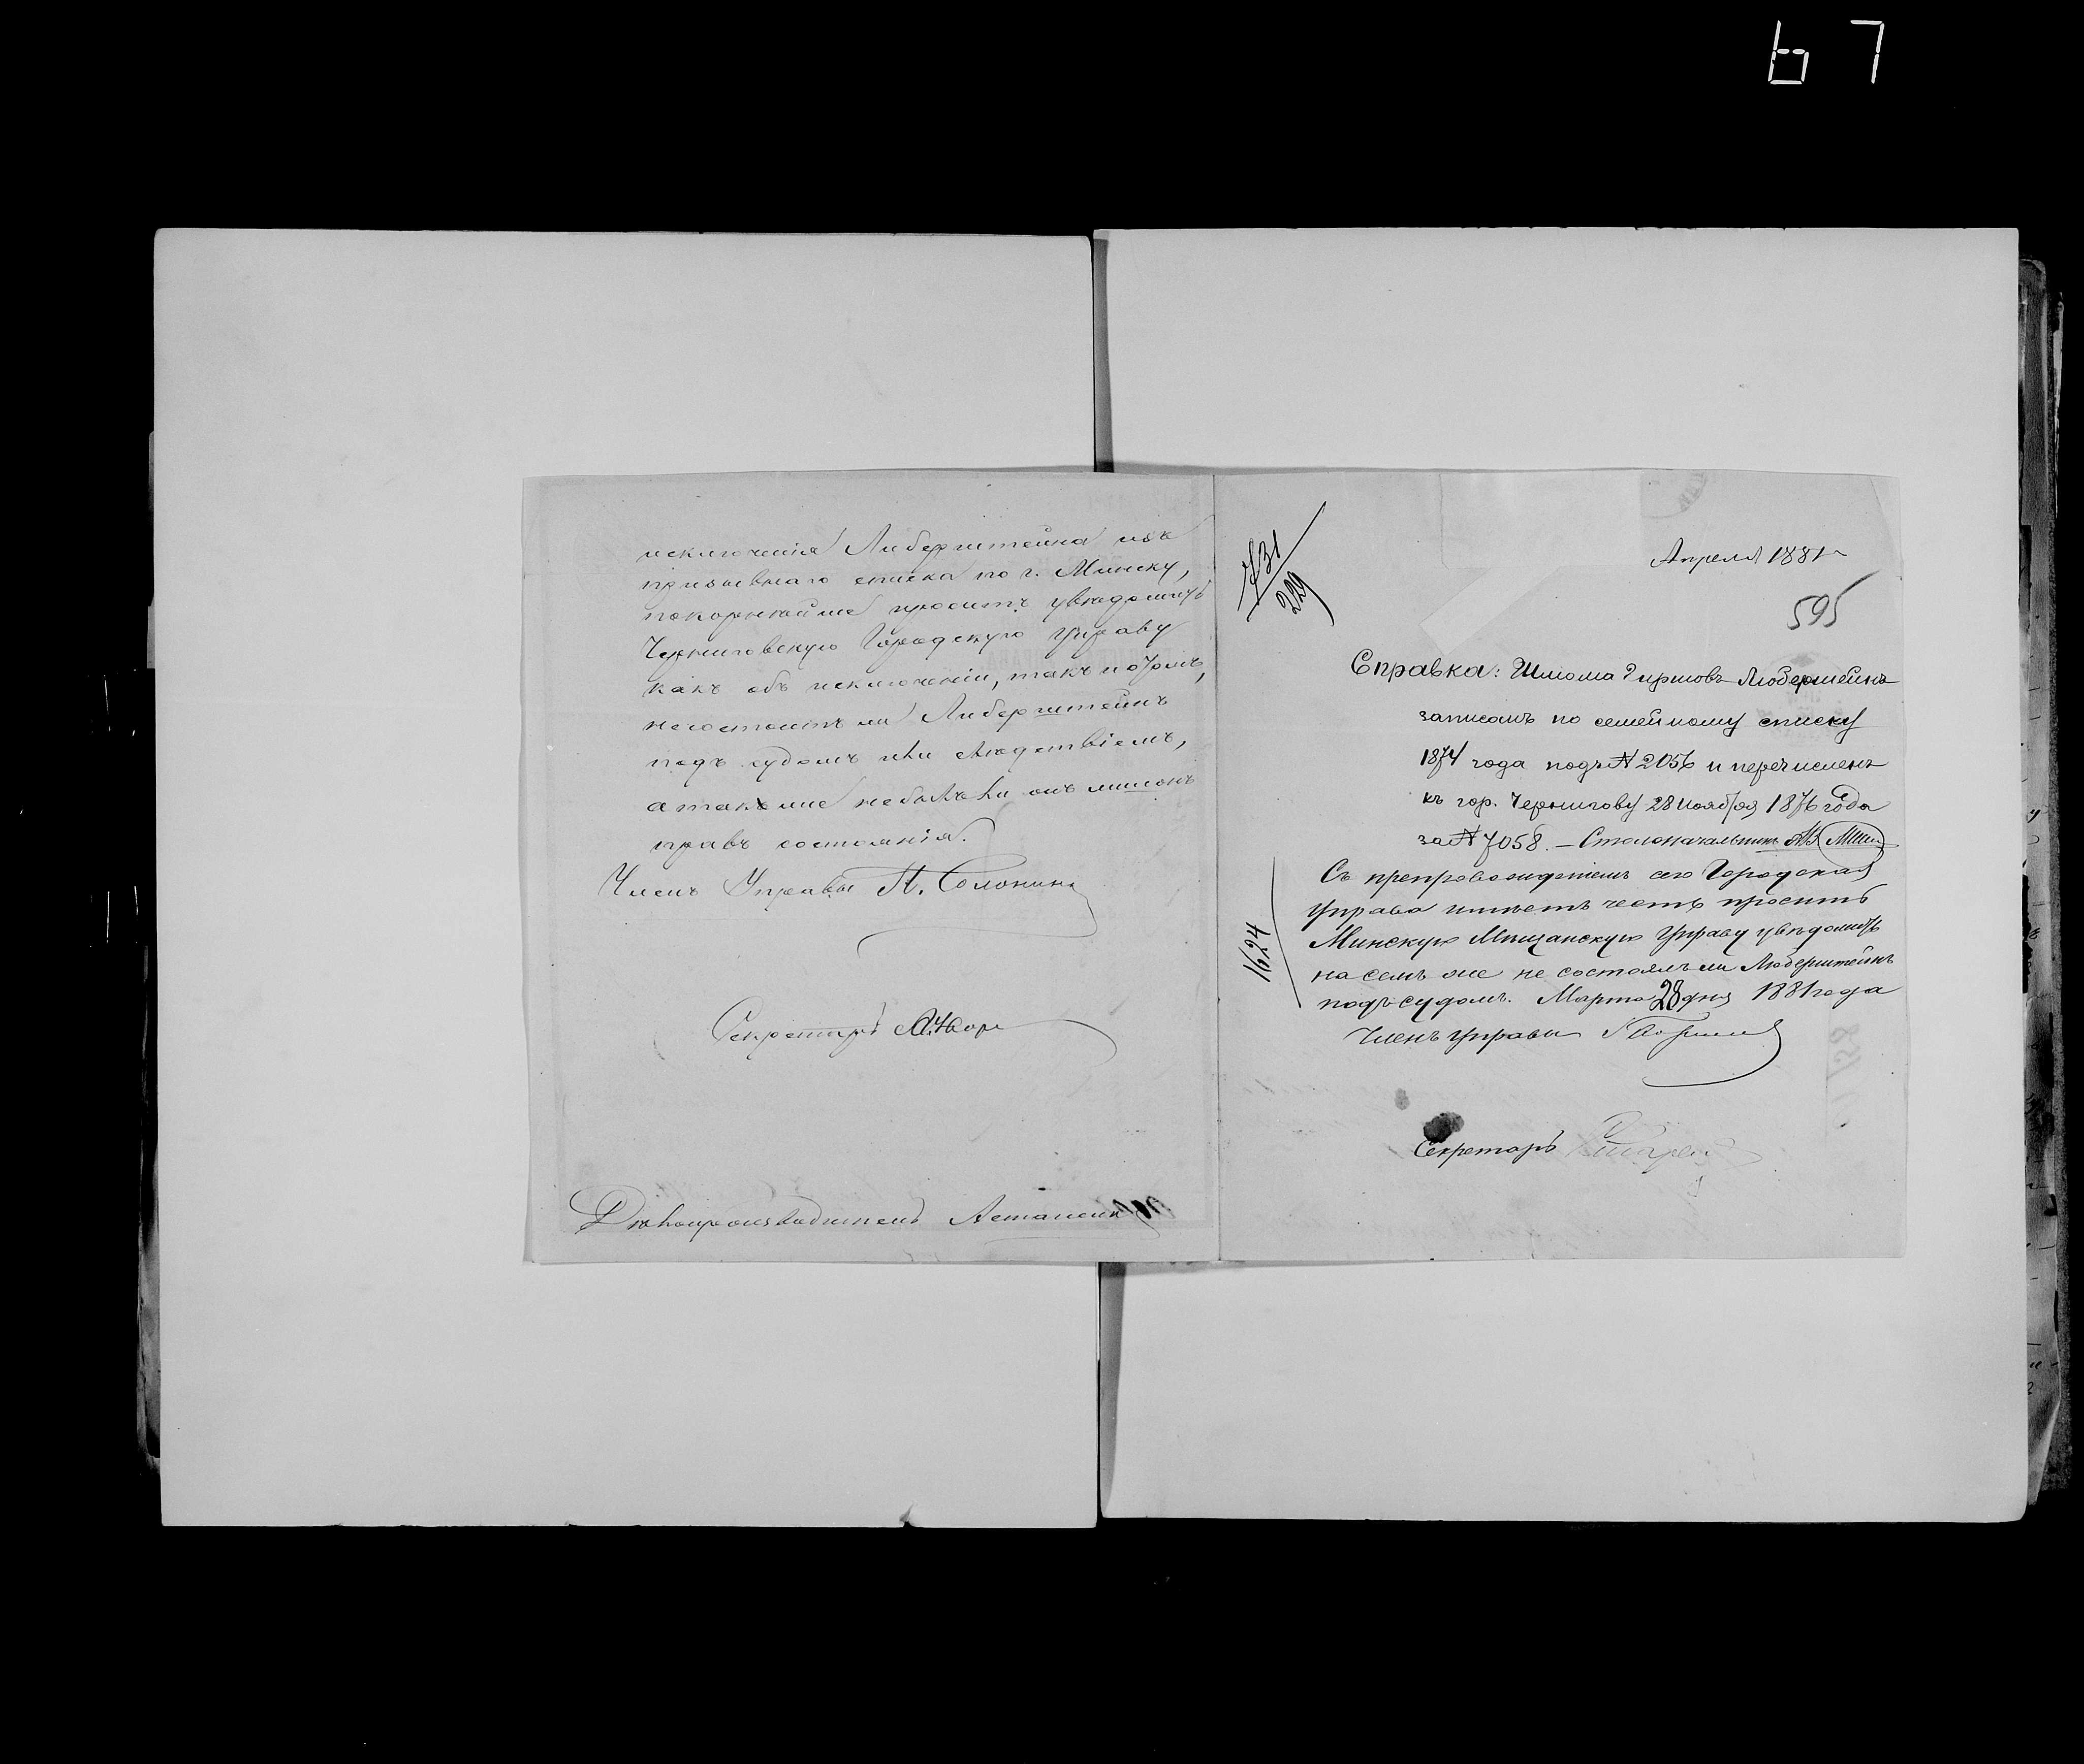 67
исключенія Либерштейна изъ
призывнаго списка по г. Минску,
покорнѣйше проситъ увѣдомить
Черниговскую Городскую Управу
какъ объ исключеніи, такъ и о томъ,
несостоитъ ли Либерштейнъ
подъ судомъ или слѣдствіемъ,
а также небылъ ли онъ лишонъ
правъ состоянія.
Членъ Управы П. Солонина
Секретарь
Дѣлопроизводитель
229
Апреля 1881 г
595
Справка: Шлома Гиршовъ Люберштейнъ
записанъ по семейному списку
1874 года подъ № 2056 и перечисленъ
къ гор. Чернигову 28 ноября 1876 года
за № 7058. — Столоначальникъ
Съ препровожденіемъ сего Городская
Управа имѣетъ честь просить
Минскую Мѣщанскую Управу увѣдомить
на семъ же не состоялъ ли Люберштейнъ
подъ судомъ. Марта 28 дня 1881 года
Членъ Управы
Секретарь
1624